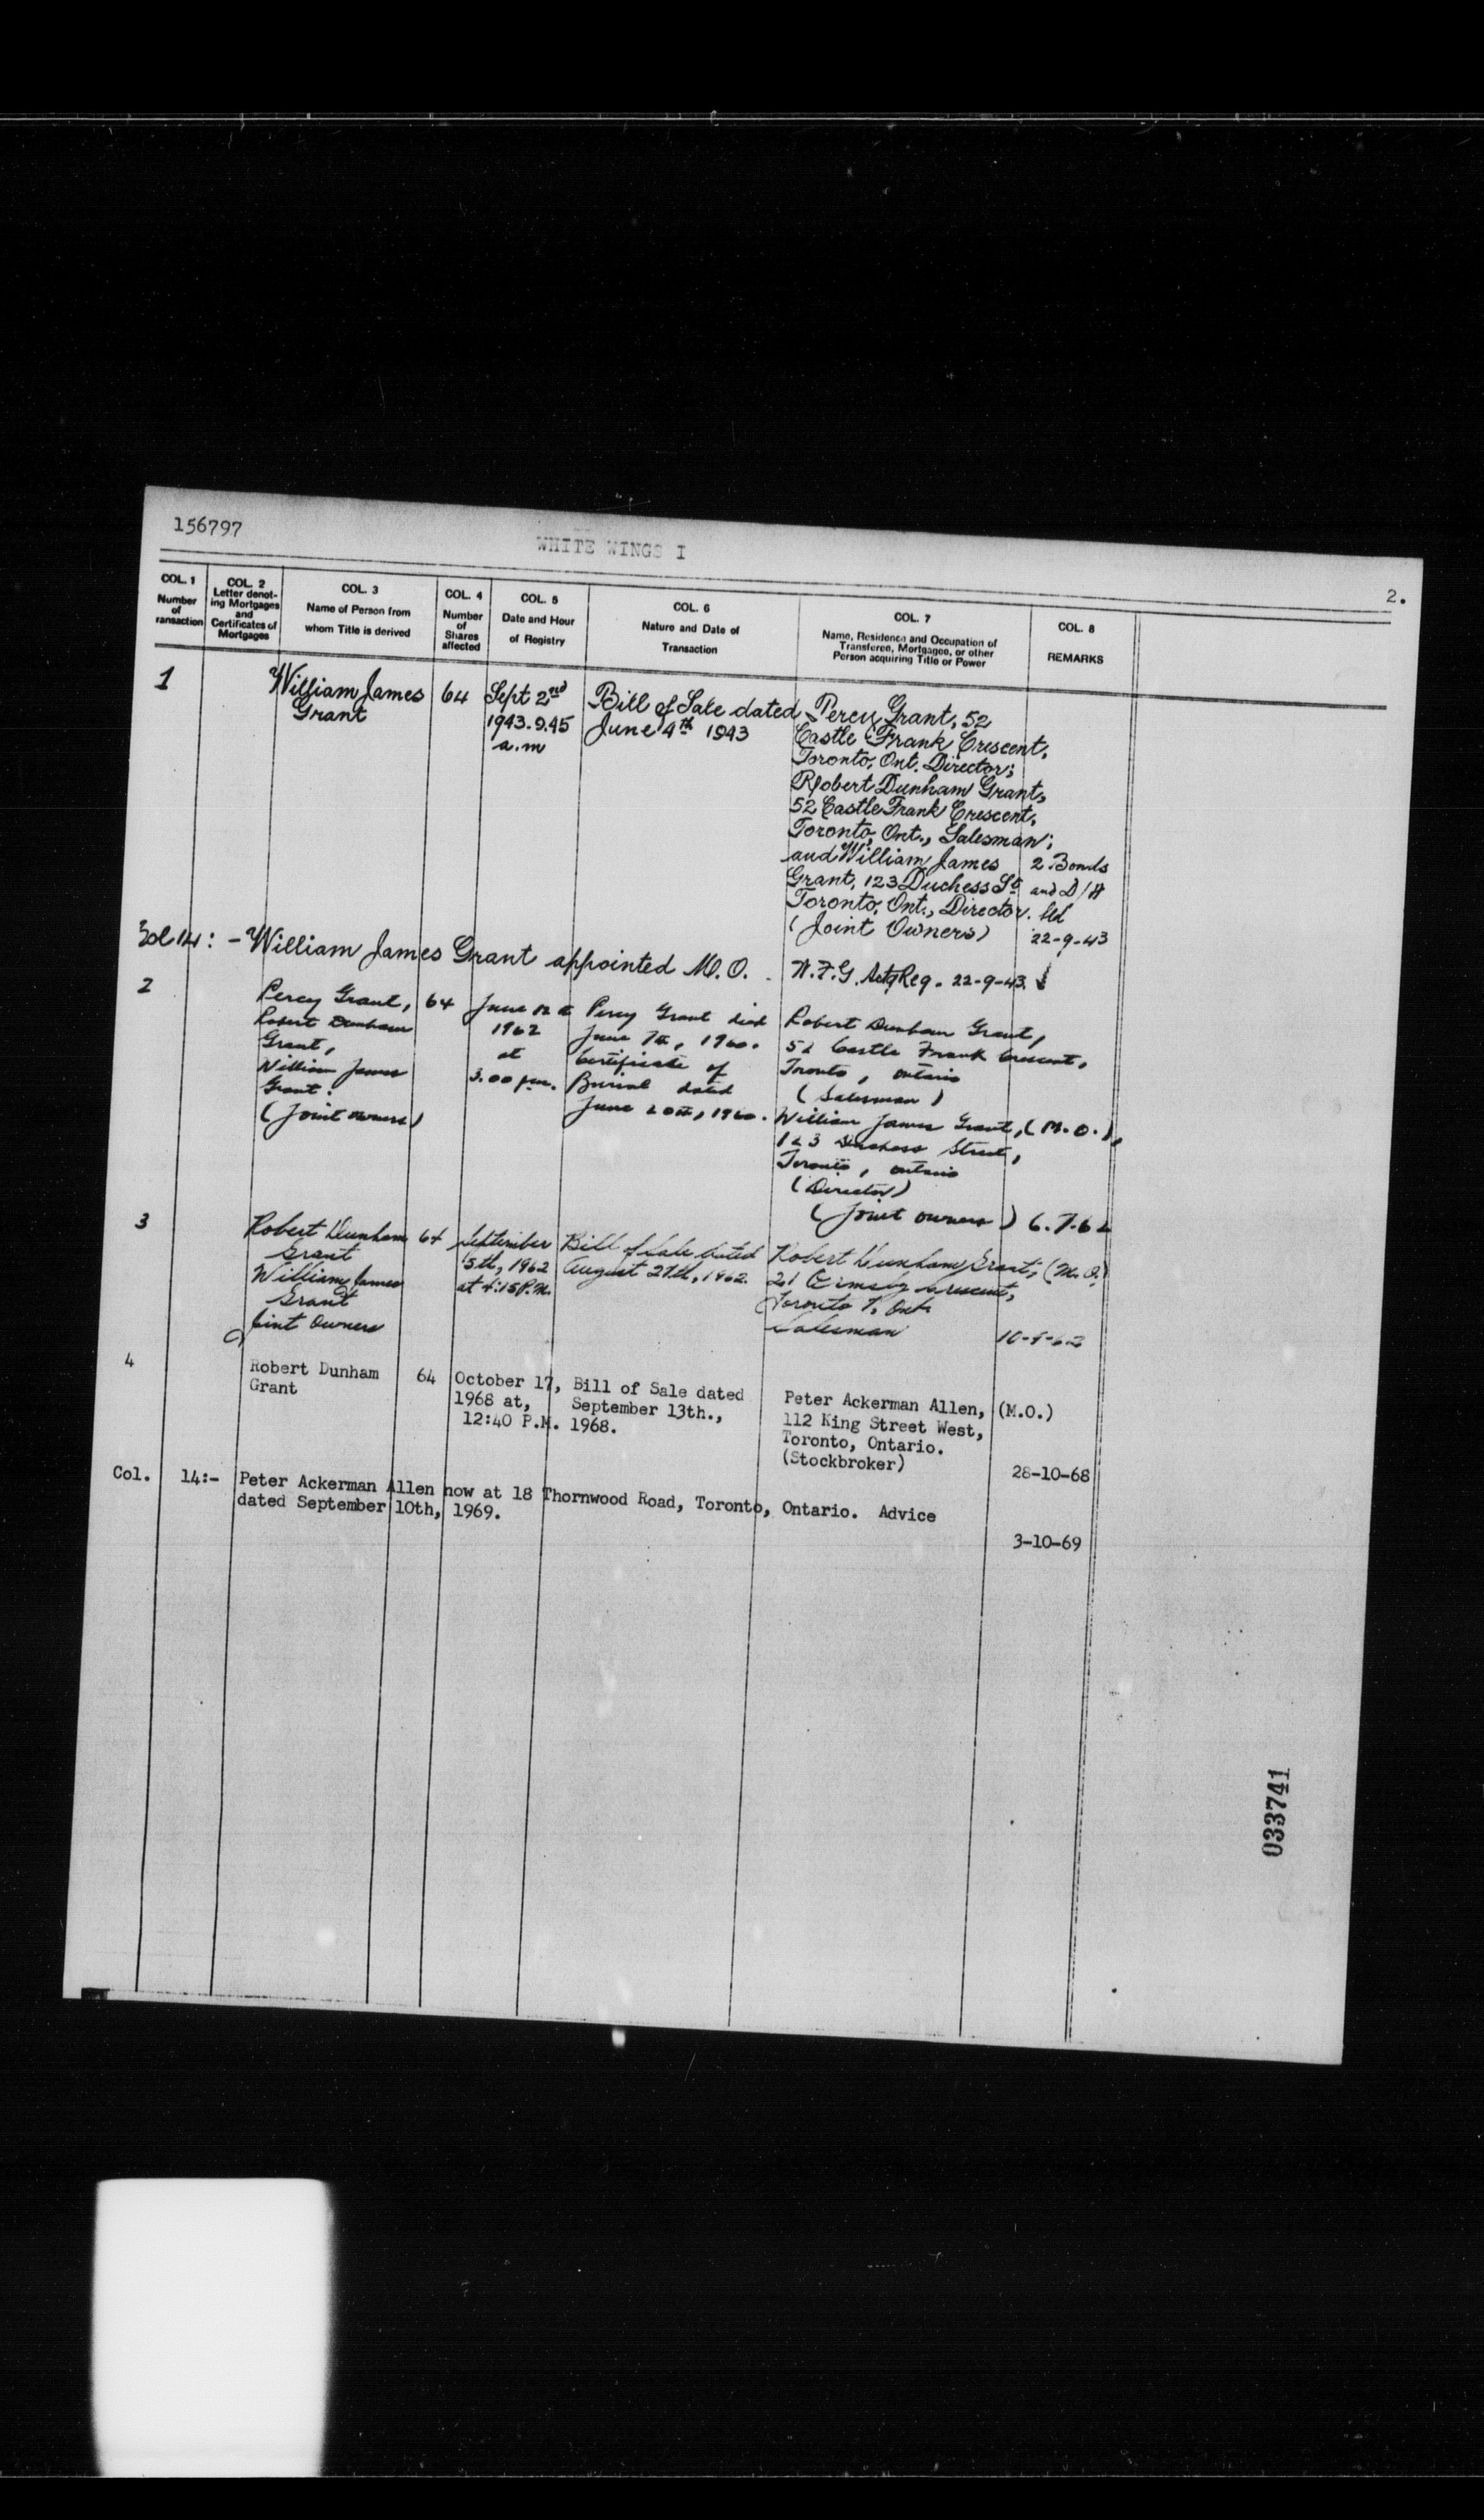 156797
WHITE WINGS I
2.
COL. 1
Number
of
ransaction
COL. 2
Letter denot-
ing Mortgages
and
Certificates of
Mortgages
COL. 3
Name of Person from
whom Title is derived
COL. 4
Number
of
Shares
affected
COL. 5
Date and Hour
of Registry
COL. 6
Nature and Date of
Transaction
COL. 7
Name, Residence and Occupation of
Transferee, Mortgagee, or other
Person acquiring Title or Power
COL. 8
REMARKS
1
William James
Grant
64
Sept 2nd
1943. 9.45
a.m
Bill of Sale dated
June 4th 1943
Percy Grant, 52
Castle Frank Crescent,
Toronto, Ont. Director;
Robert Dunham Grant,
52 Castle Frank Crescent,
Toronto, Ont., Salesman;
and William James
Grant, 123 Duchess St
Toronto, Ont., Director.
(Joint Owners)
2 Bonds
and D/H
22-9-43
Col 14: - William James Grant appointed M.O.
Actg Reg. 22-9-43.
2
Percy Grant,
Robert Dunham
Grant,
William James
Grant.
(Joint owners)
64
June 12th
1962
at
3.00 pm.
Percy Grant died
June 7th, 1960.
Certificate of
Burial dated
June 20th, 1960.
Robert Dunham Grant,
52 Castle Frank Crescent,
Toronto, Ontario
(Salesman)
William James Grant, (M.O.),
123 Duchess Street,
Toronto, Ontario
(Director)
(Joint owners)
6.7.62
3
Robert Dunham
Grant
William James
Grant
Joint Owners
64
September
5th, 1962
at 4:15 P.M.
Bill of Sale dated
August 27th, 1962.
Robert Dunham Grant, (M.O.)
21 Ormsby Crescent,
Toronto 7, Ont.
Salesman
10-9-62
4
Robert Dunham
Grant
64
October 17,
1968 at,
12:40 P.M.
Bill of Sale dated
September 13th.,
1968.
Peter Ackerman Allen,
112 King Street West,
Toronto, Ontario.
(Stockbroker)
(M.O.)
28-10-68
Col. 14:- Peter Ackerman Allen now at 18 Thornwood Road, Toronto, Ontario. Advice
dated September 10th, 1969.
3-10-69
033741